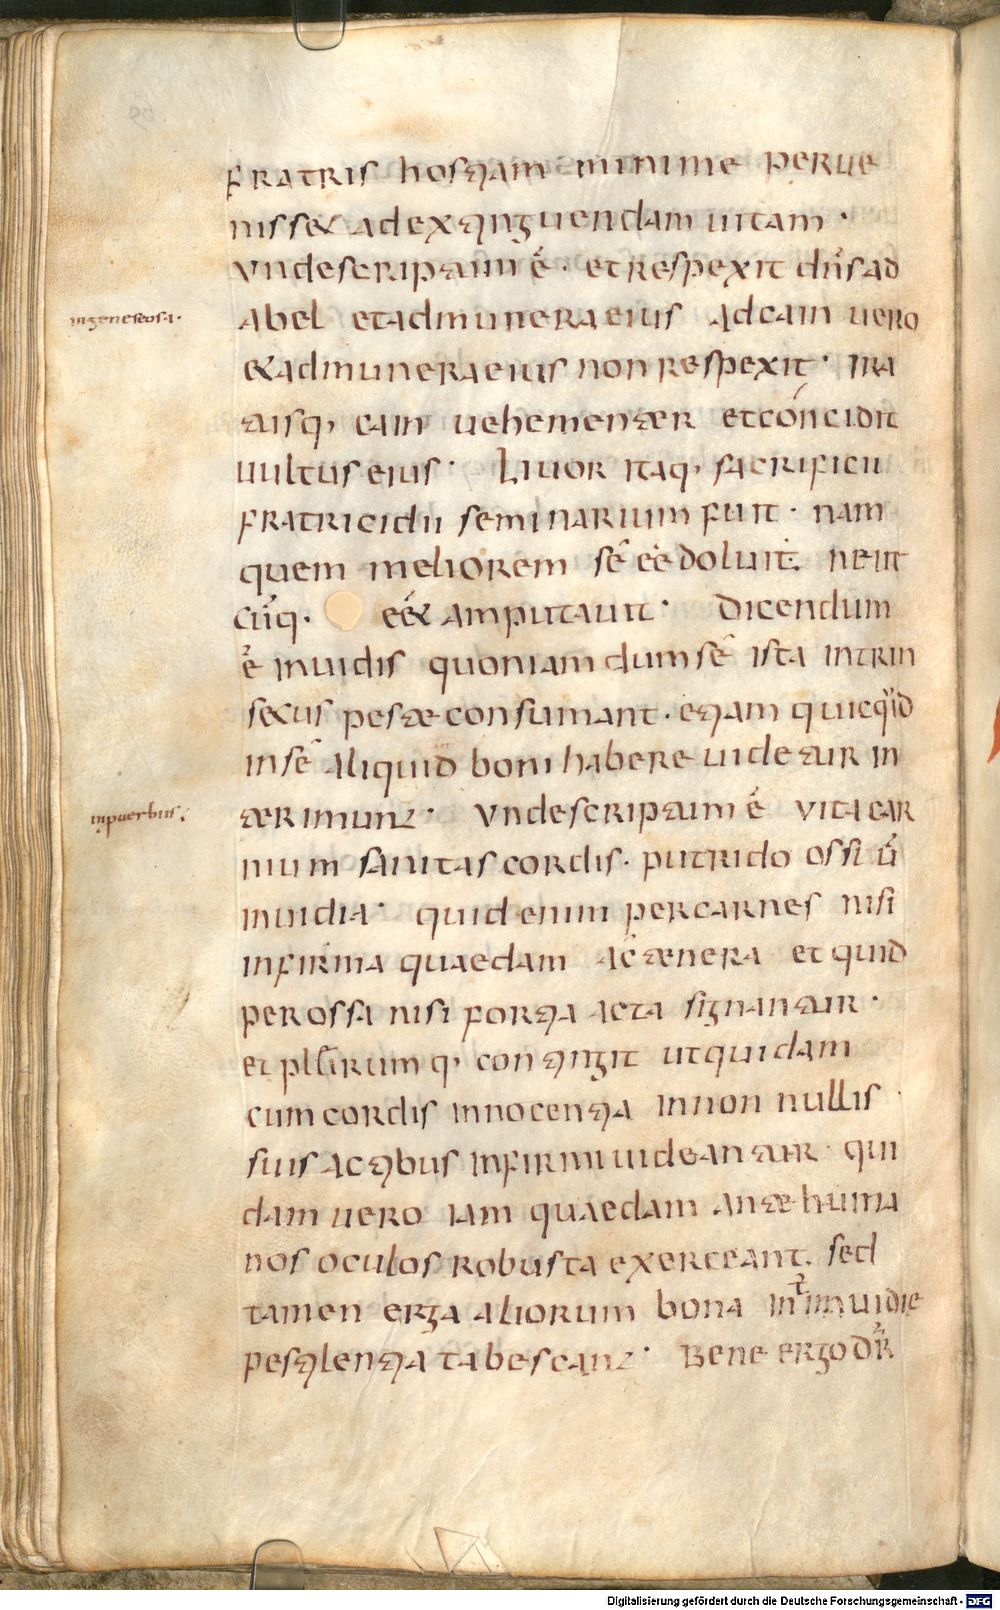 fratris hostiam minime perue
nisset ad extinguendam uitam ·
Vnde scriptum ē · et respexit dn̄s ad
in geneseos a ·
abel et ad munera eius ad cain uero
& ad munera eius non respexit · Ira
tusq, cain uehementer et concidit
uultus eius · Liuor itaq, sacrificii
fratricidii seminarium fuit · nam
quem meliorem sē eē doluit. ne ut
cūq. eēt amputauit · Dicendum
ē inuidis quoniam dum sē ista intrin
secus peste consumant. etiam quicqͥd
in sē aliquid boni habere uidetur in
in puerbiis.
terimunt · Vnde scriptum ē Vita car
nium sanitas cordis. putrido ossiū
inuidia · quid enim per carnes nisi
infirma quaedam ac tenera et quid
per ossa nisi fortia acta signantur ·
et plerumq, contingit ut quidam
cum cordis innocentia in non nullis
suis actibus infirmi uideantur · qui
dam uero iam quaedam ante huma
nos oculos robusta exerceant. sed
tamen erga aliorum bona int inuidie
pestilentia tabescant · Bene ergo dr̄
Digitalisierung gefördert durch die Deutsche Forschungsgemeinschaft - DFG